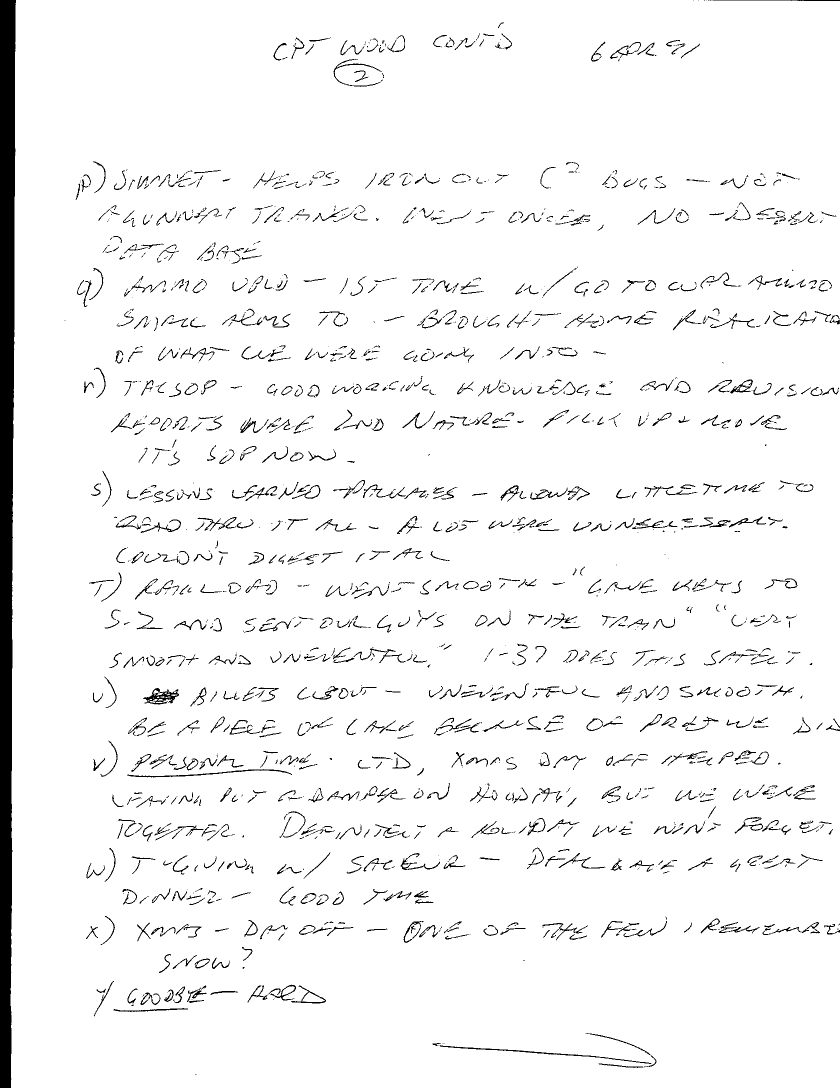 CPT WOOD CONT'D 6 APR 91
2
p) SIMNET - HELPS IRON OUT C2 BUGS - NOT
A GUNNERY TRAINER. WENT ONCE, NO - DESERT
DATA BASE
q) AMMO UPLD - 1ST TIME W/ GO TO WAR AMMO
SMALL ARMS TO - BROUGHT HOME REALICATIO
OF WHAT WE WERE GOING INTO -
r) TACSOP - GOOD WORKING KNOWLEDGE AND REVISION
REPORTS WERE 2ND NATURE - PICK UP + MOVE
IT'S SOP NOW -
s) LESSONS LEARNED PACKAGES - ALLOWED LITTLE TIME TO
READ THRU IT ALL - A LOT WERE UNNECESSARY.
COULDN'T DIGEST IT ALL
T) RAILLOAD - WENT SMOOTH - "GAVE KEYS TO
S-2 AND SENT OUR GUYS ON THE TRAIN" "VERY
SMOOTH AND UNEVENTFUL." 1-37 DOES THIS SAFELY.
U) BILLETS CLEOUT - UNEVENTFUL AND SMOOTH.
BE A PIECE OF CAKE BECAUSE OF WE DID
V) PERSONAL TIME. LTD, XMAS DAY OFF HELPED.
LEAVING PUT A DAMPER ON HOLIDAY, BUT WE WERE
TOGETHER. DEFINITELY A HOLIDAY WE WON'T FORGET.
W) T-GIVING W/ SACEUR - DFAC GAVE A GREAT
DINNER - GOOD TIME
X) XMAS - DAY OFF - ONE OF THE FEW I REMEMBE
SNOW?
Y) GOODBYE - HARD